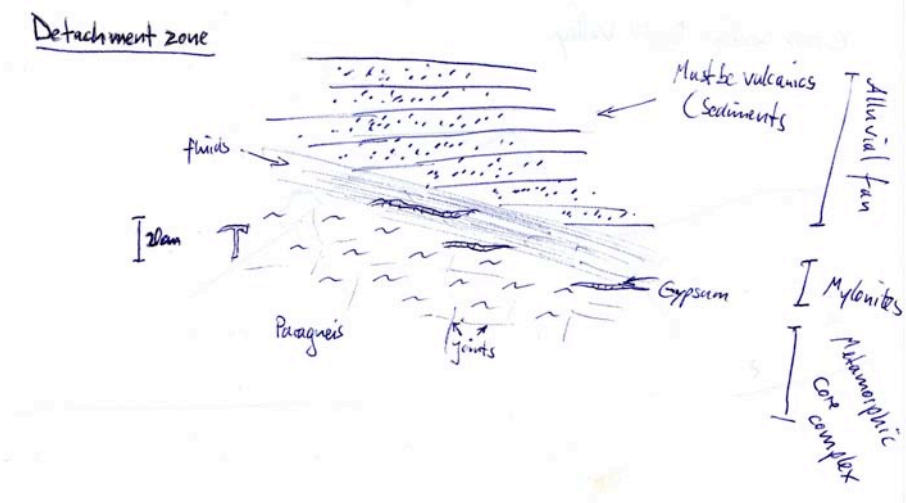 Detachment zone
Must be vulcanics
(Sediments
Alluvial fan
fluids
20cm
Gypsum
Mylonites
Paragneis
joints
Metamorphic
core
complex